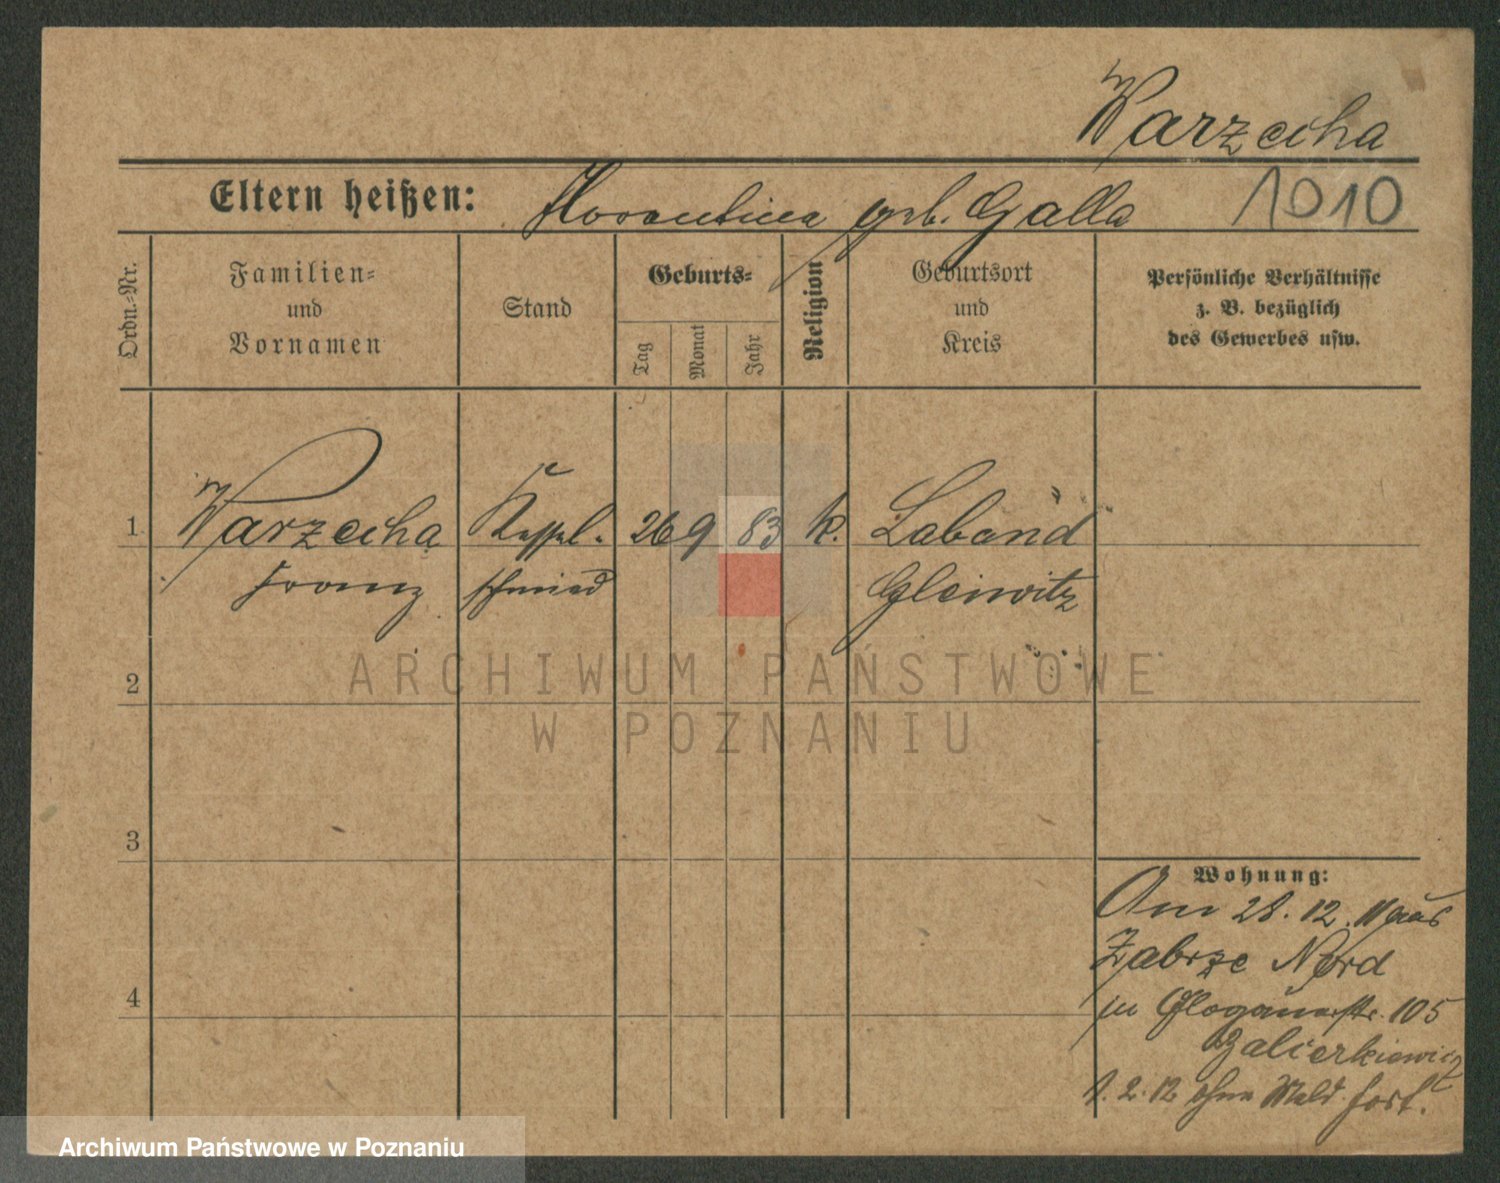 Warzecha
Eltern heißen: Florentina geb. Galla 1010
Ordn.-Nr.
Familien-
und
Vornamen
Stand
Geburts-
Tag
Monat
Jahr
Religion
Geburtsort
und
Kreis
Persönliche Verhältnisse
z. B. bezüglich
des Gewerbes usw.
1 Warzecha Kessel- 26 9 83 k. Laband
Franz schmied Gleiwitz
ARCHIWUM PAŃSTWOWE
2
W POZNANIU
3
Wohnung:
Am 28. 12. 11 aus
Zabrze Nord
4
zu Glogauerstr. 105
Zalierkiewicz
1. 2. 12 ohne Meld. fort.
Archiwum Państwowe w Poznaniu